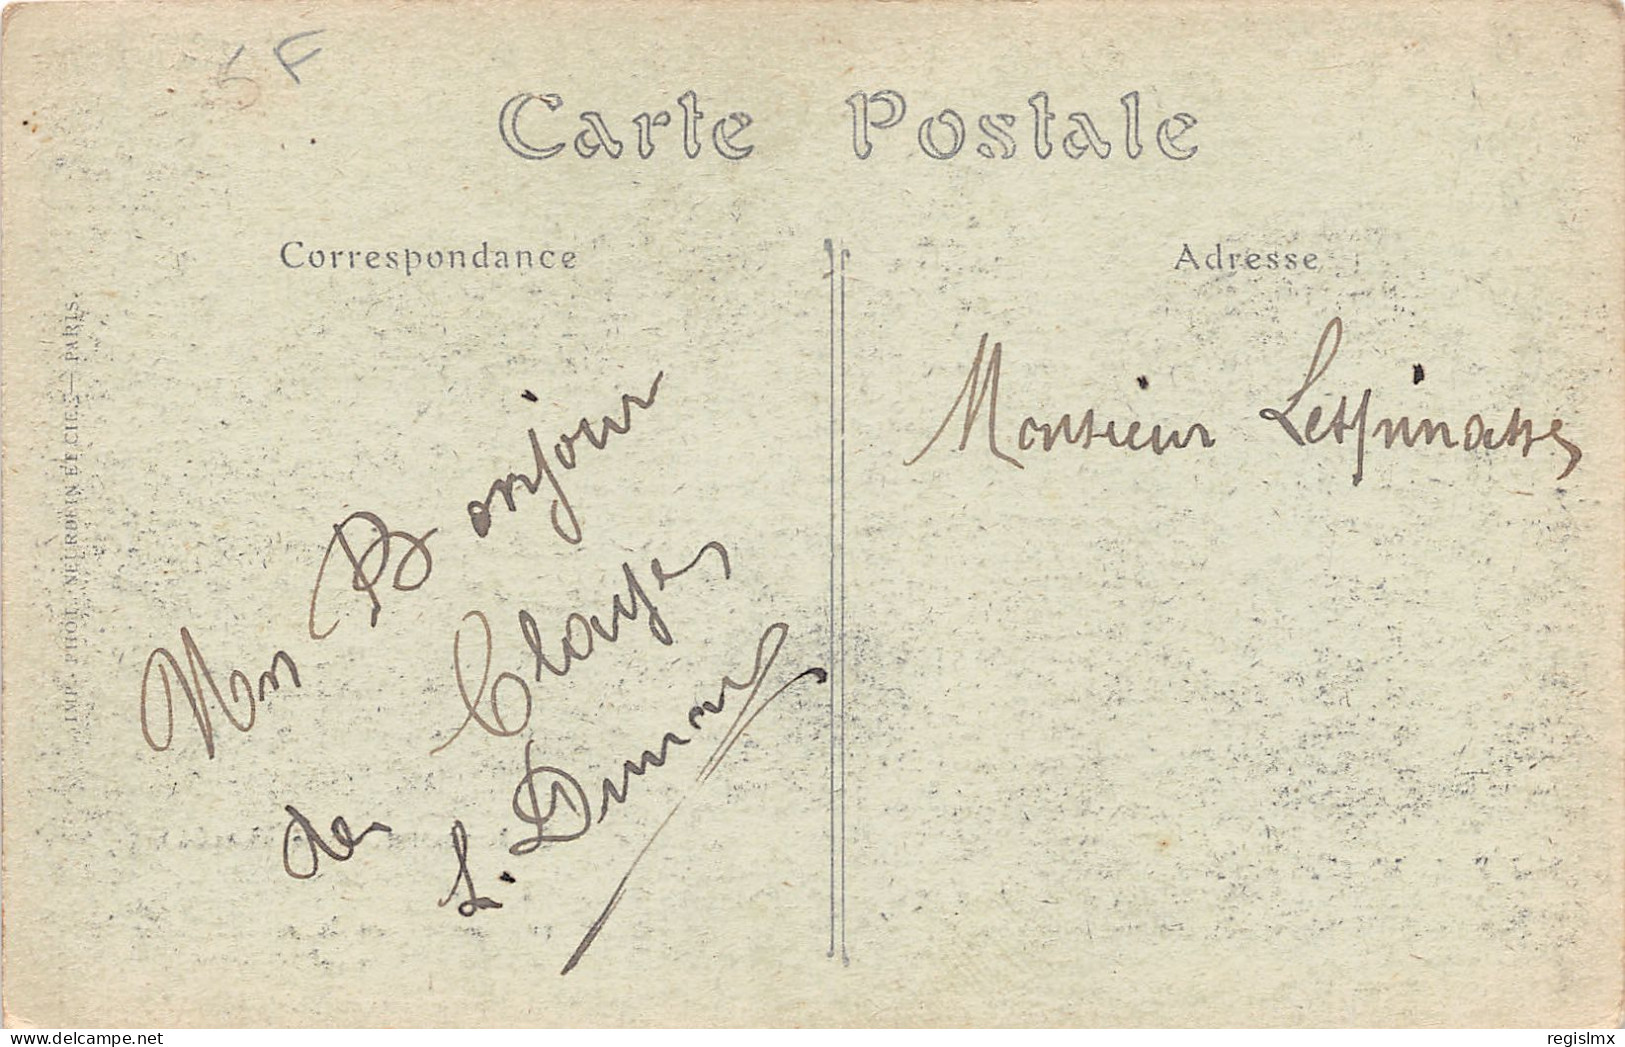 5 F
Carte Postale
Correspondance
Adresse
IMP. PHOT. NEURDEIN ET CIE. — PARIS.
Monsieur Lespinasse
Mon Bonjour
de Clayes
L.
delcampe.net
regislmx